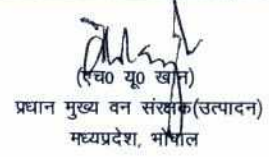 (एच0 यू0 खान)
प्रधान मुख्य वन संरक्षक(उत्पादन)
मध्यप्रदेश, भोपाल